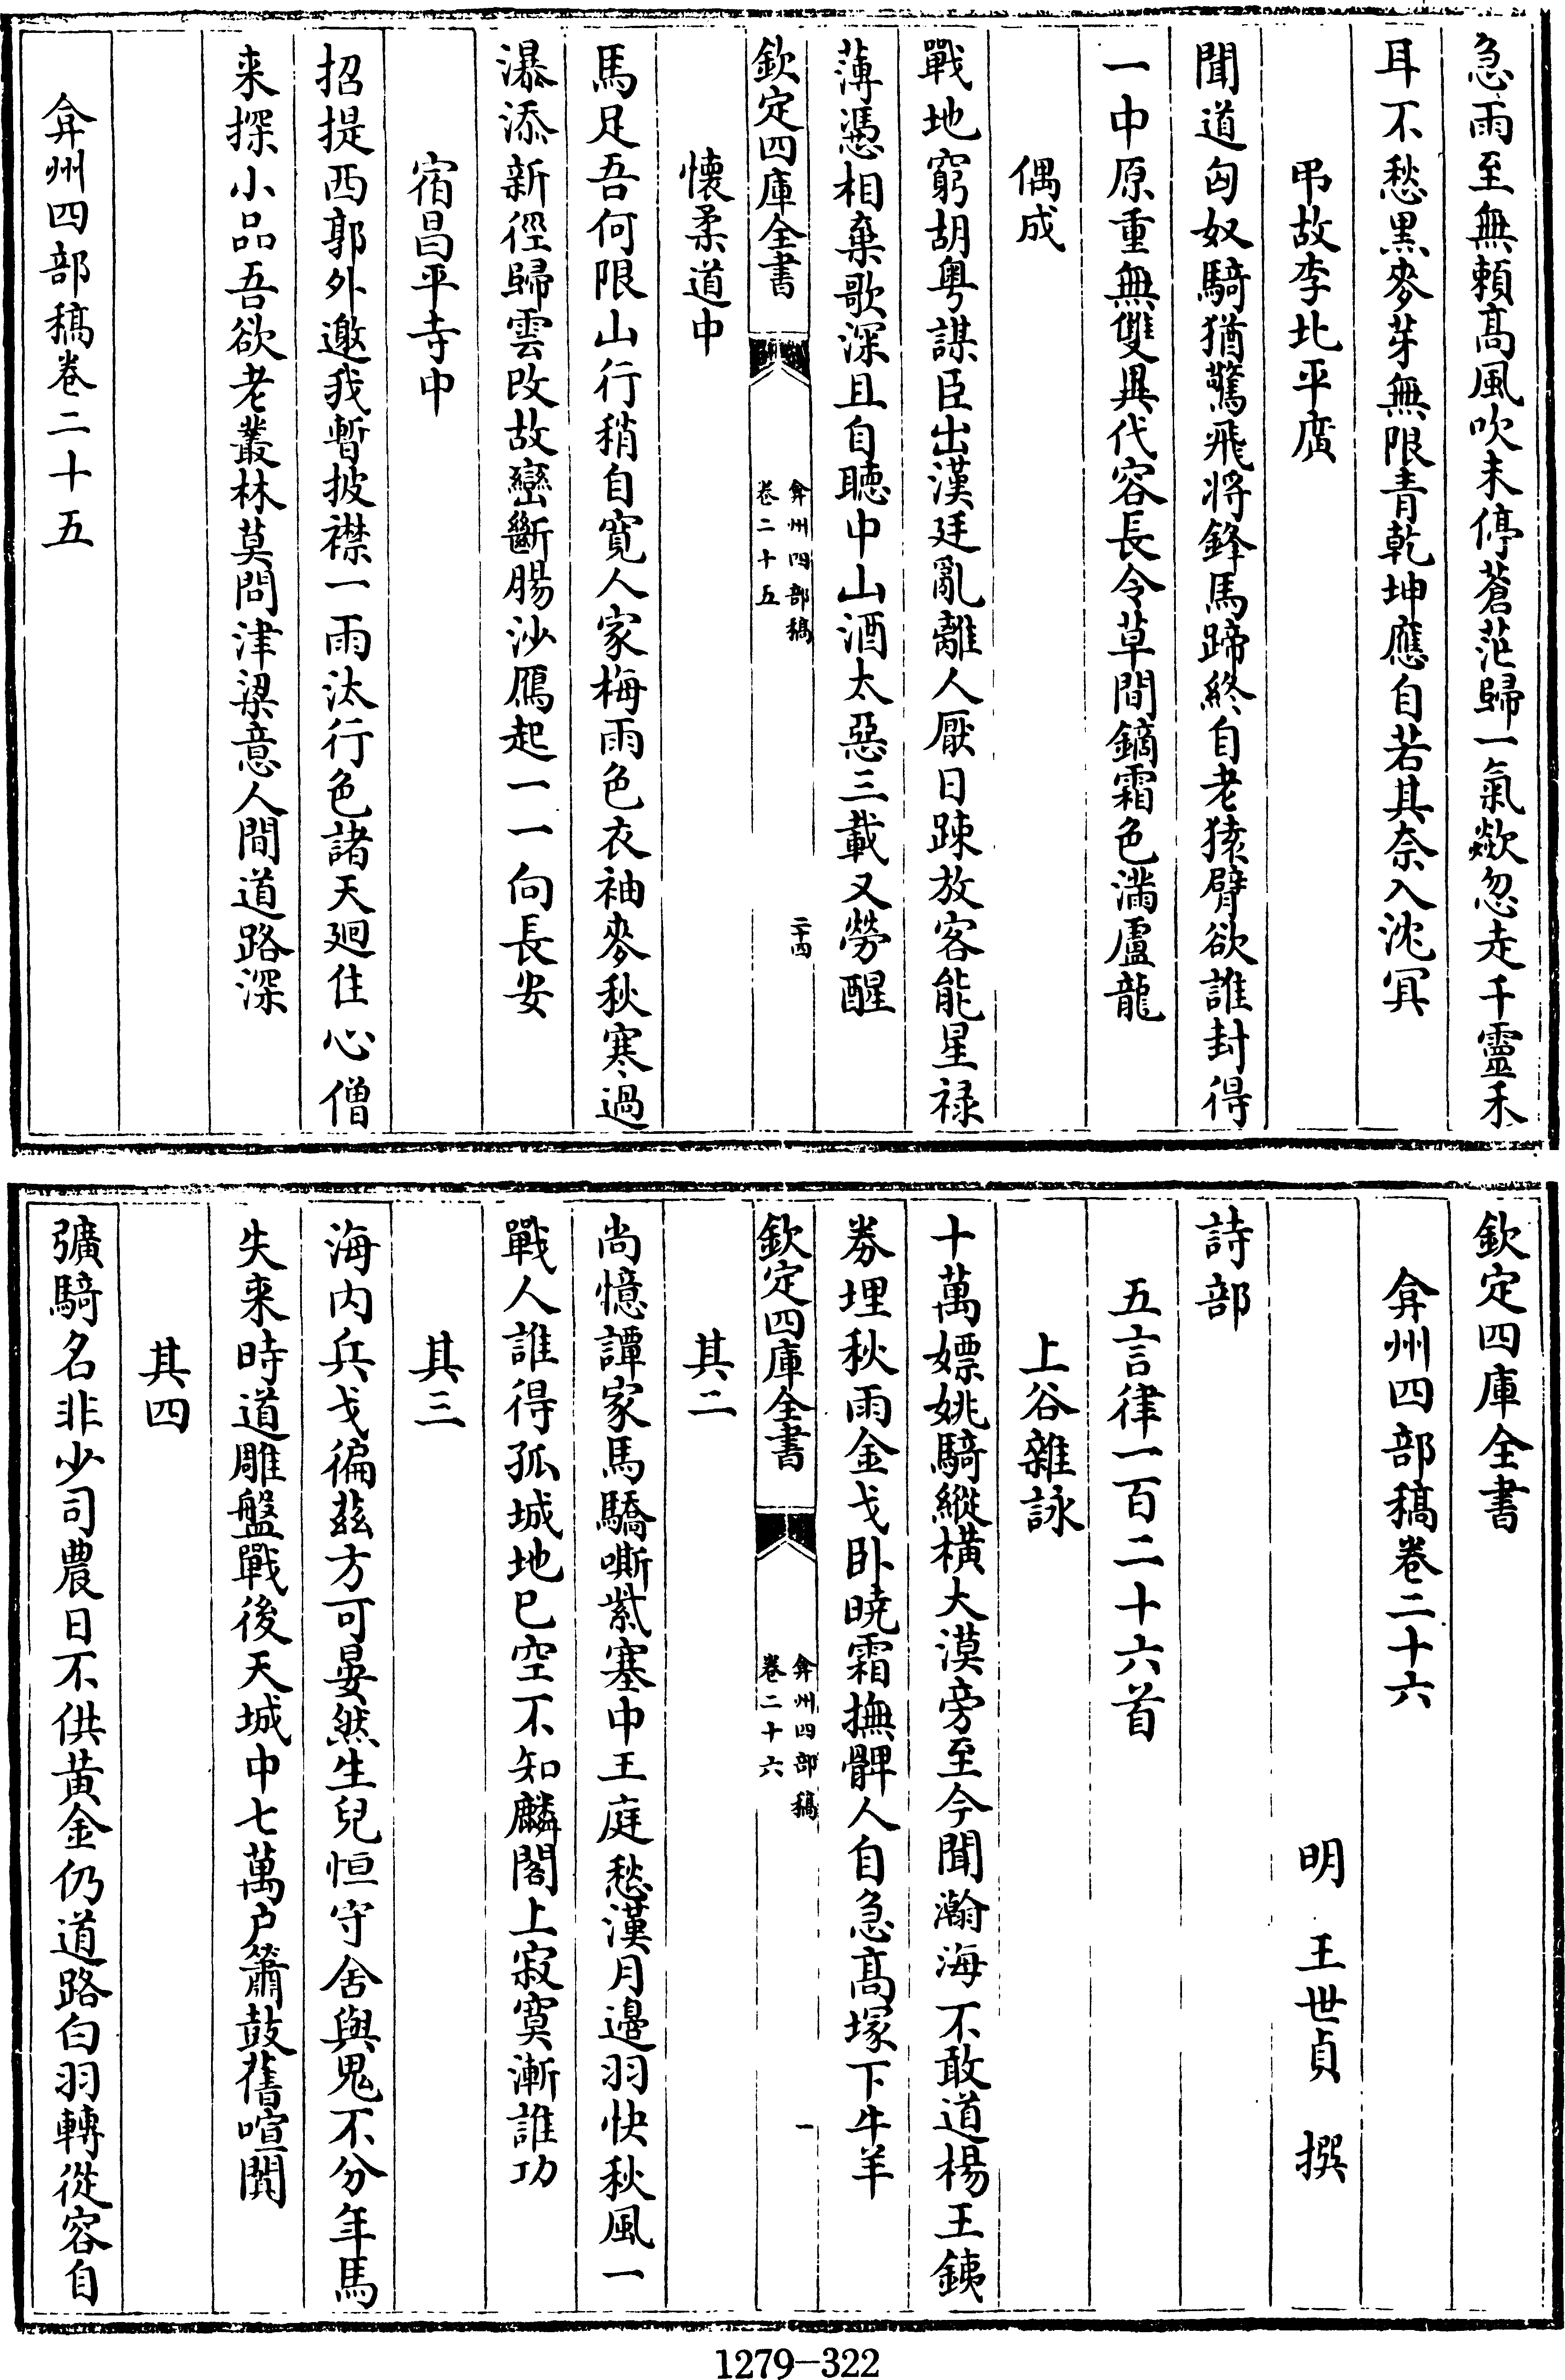 急雨至無賴髙風吹未停蒼茫歸一氣歘忽走千靈禾
耳不愁黒麥芽無限青乾坤應自若其奈入沈冥
弔故李北平廣
聞道匈奴騎猶驚飛將鋒馬蹄終自老猿臂欲誰封得
一中原重無雙異代容長令草間鏑霜色滿盧龍
偶成
戰地窮胡粵謀臣出漢廷亂離人厭日踈放客能星祿
薄憑相棄歌深且自聽中山酒太惡三載又勞醒
欽定四庫全書
弇州四部稿
卷二十五
二十四
懷柔道中
馬足吾何限山行稍自寛人家梅雨色衣袖麥秋寒過
瀑添新徑歸雲改故巒斷腸沙鴈起一一向長安
宿昌平寺中
招提西郭外邀我暫披襟一雨汰行色諸天廻住心僧
来探小品吾欲老叢林莫問津梁意人間道路深
弇州四部稿卷二十五
欽定四庫全書
弇州四部稿卷二十六
明 王世貞 撰
詩部
五言律一百二十六首
上谷雜詠
十萬嫖姚騎縱横大漠旁至今聞瀚海不敢道楊王銕
券埋秋雨金戈卧曉霜撫髀人自急髙塚下牛羊
欽定四庫全書
弇州四部稿
卷二十六
一
其二
尚憶譚家馬驕嘶紫塞中王庭愁漢月邉羽快秋風一
戰人誰得孤城地已空不知麟閣上寂寞漸誰功
其三
海内兵戈徧兹方可晏然生兒恒守舍與鬼不分年馬
失来時道雕盤戰後天城中七萬户簫鼓舊喧闐
其四
彍騎名非少司農日不供黄金仍道路白羽轉從容自
1279—322